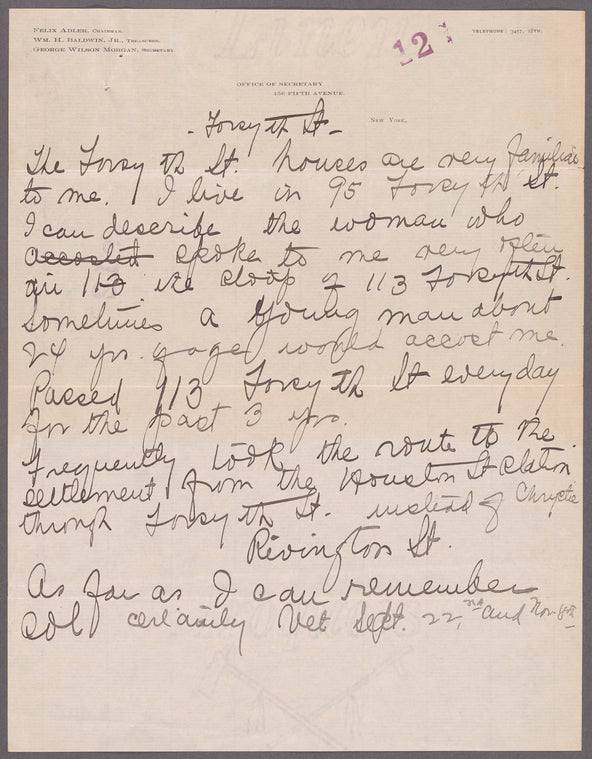 FELIX ADLER, CHAIRMAN.
WM. H. BALDWIN, JR., TREASURER.
GEORGE WILSON MORGAN, SECRETARY.
121
TELEPHONE 3457, 18TH.
OFFICE OF SECRETARY
156 FIFTH AVENUE.
NEW YORK,
- Forsyth St -
The Forsyth St. houses are very familiar
to me. I live in 95 Forsyth St.
I can describe the woman who
accosted spoke to me very often
in 113 the stoop of 113 Forsyth St.
Sometimes a young man about
24 yrs. of age would accost me.
Passed 113 Forsyth St everyday
for the past 3 yrs.
Frequently took the route to the
settlement from the Houston St station
through Forsyth St. instead of Chrystie
Rivington St.
As far as I can remember
sol certainly bet Sept. 22, nd and Nov. 8th